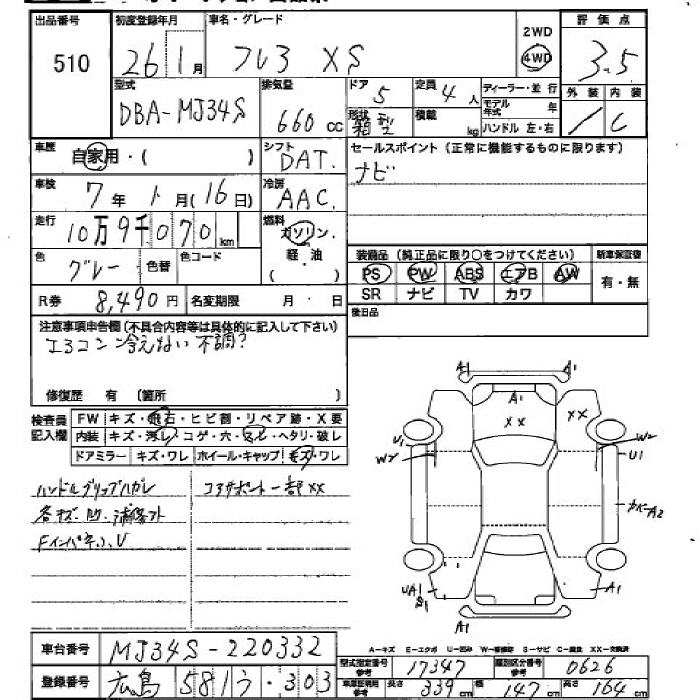 出品番号 初度登録年月 車名・グレード 評価点
510 26 1月 フレア XS 2WD 4WD 3.5
型式 排気量 ドア 定員 ディーラー・並行 外装 内装
DBA-MJ34S 660 cc 5 4人 モデル年式 年 / C
形状 箱型 積載 kg ハンドル 左・右
車歴 自家用・( ) シフト DAT. セールスポイント (正常に機能するものに限ります)
車検 7年 1月(16日) 冷房 AAC. ナビ
走行 10万9千070km 燃料 ガソリン. 軽・油 ( )
装備品 (純正品に限り○をつけてください) 新車保証書
色 グレー 色替 色コード PS PW ABS エアB AW 有・無
R券 8,490円 名変期限 月・日 SR ナビ TV カワ
後日品
注意事項申告欄 (不具合内容等は具体的に記入して下さい)
エアコン 冷えない 不調?
修復歴 有 〔箇所 〕
検査員記入欄 FW キズ・飛石・ヒビ割・リペア跡・X要
内装 キズ・汚レ・コゲ・穴・スレ・ヘタリ・破レ
ドアミラー キズ・ワレ ホイール・キャップ キズ・ワレ
ハンドルグリップハガレ コアサポート一部XX
各キズ・凹・
Fインパネ U
A1 A1
XX XX
U1 W2 W2 U1
カバーA2
UA1 S1 A1
A1
A-キズ E-エクボ U-凹み W-補修跡 S-サビ C-腐食 XX-交換済
車台番号 MJ34S-220332 型式指定番号 参考 17347 類別区分番号 参考 0626
登録番号 広島 581 う ・303 長さ 339cm 幅 147cm 高さ 164cm